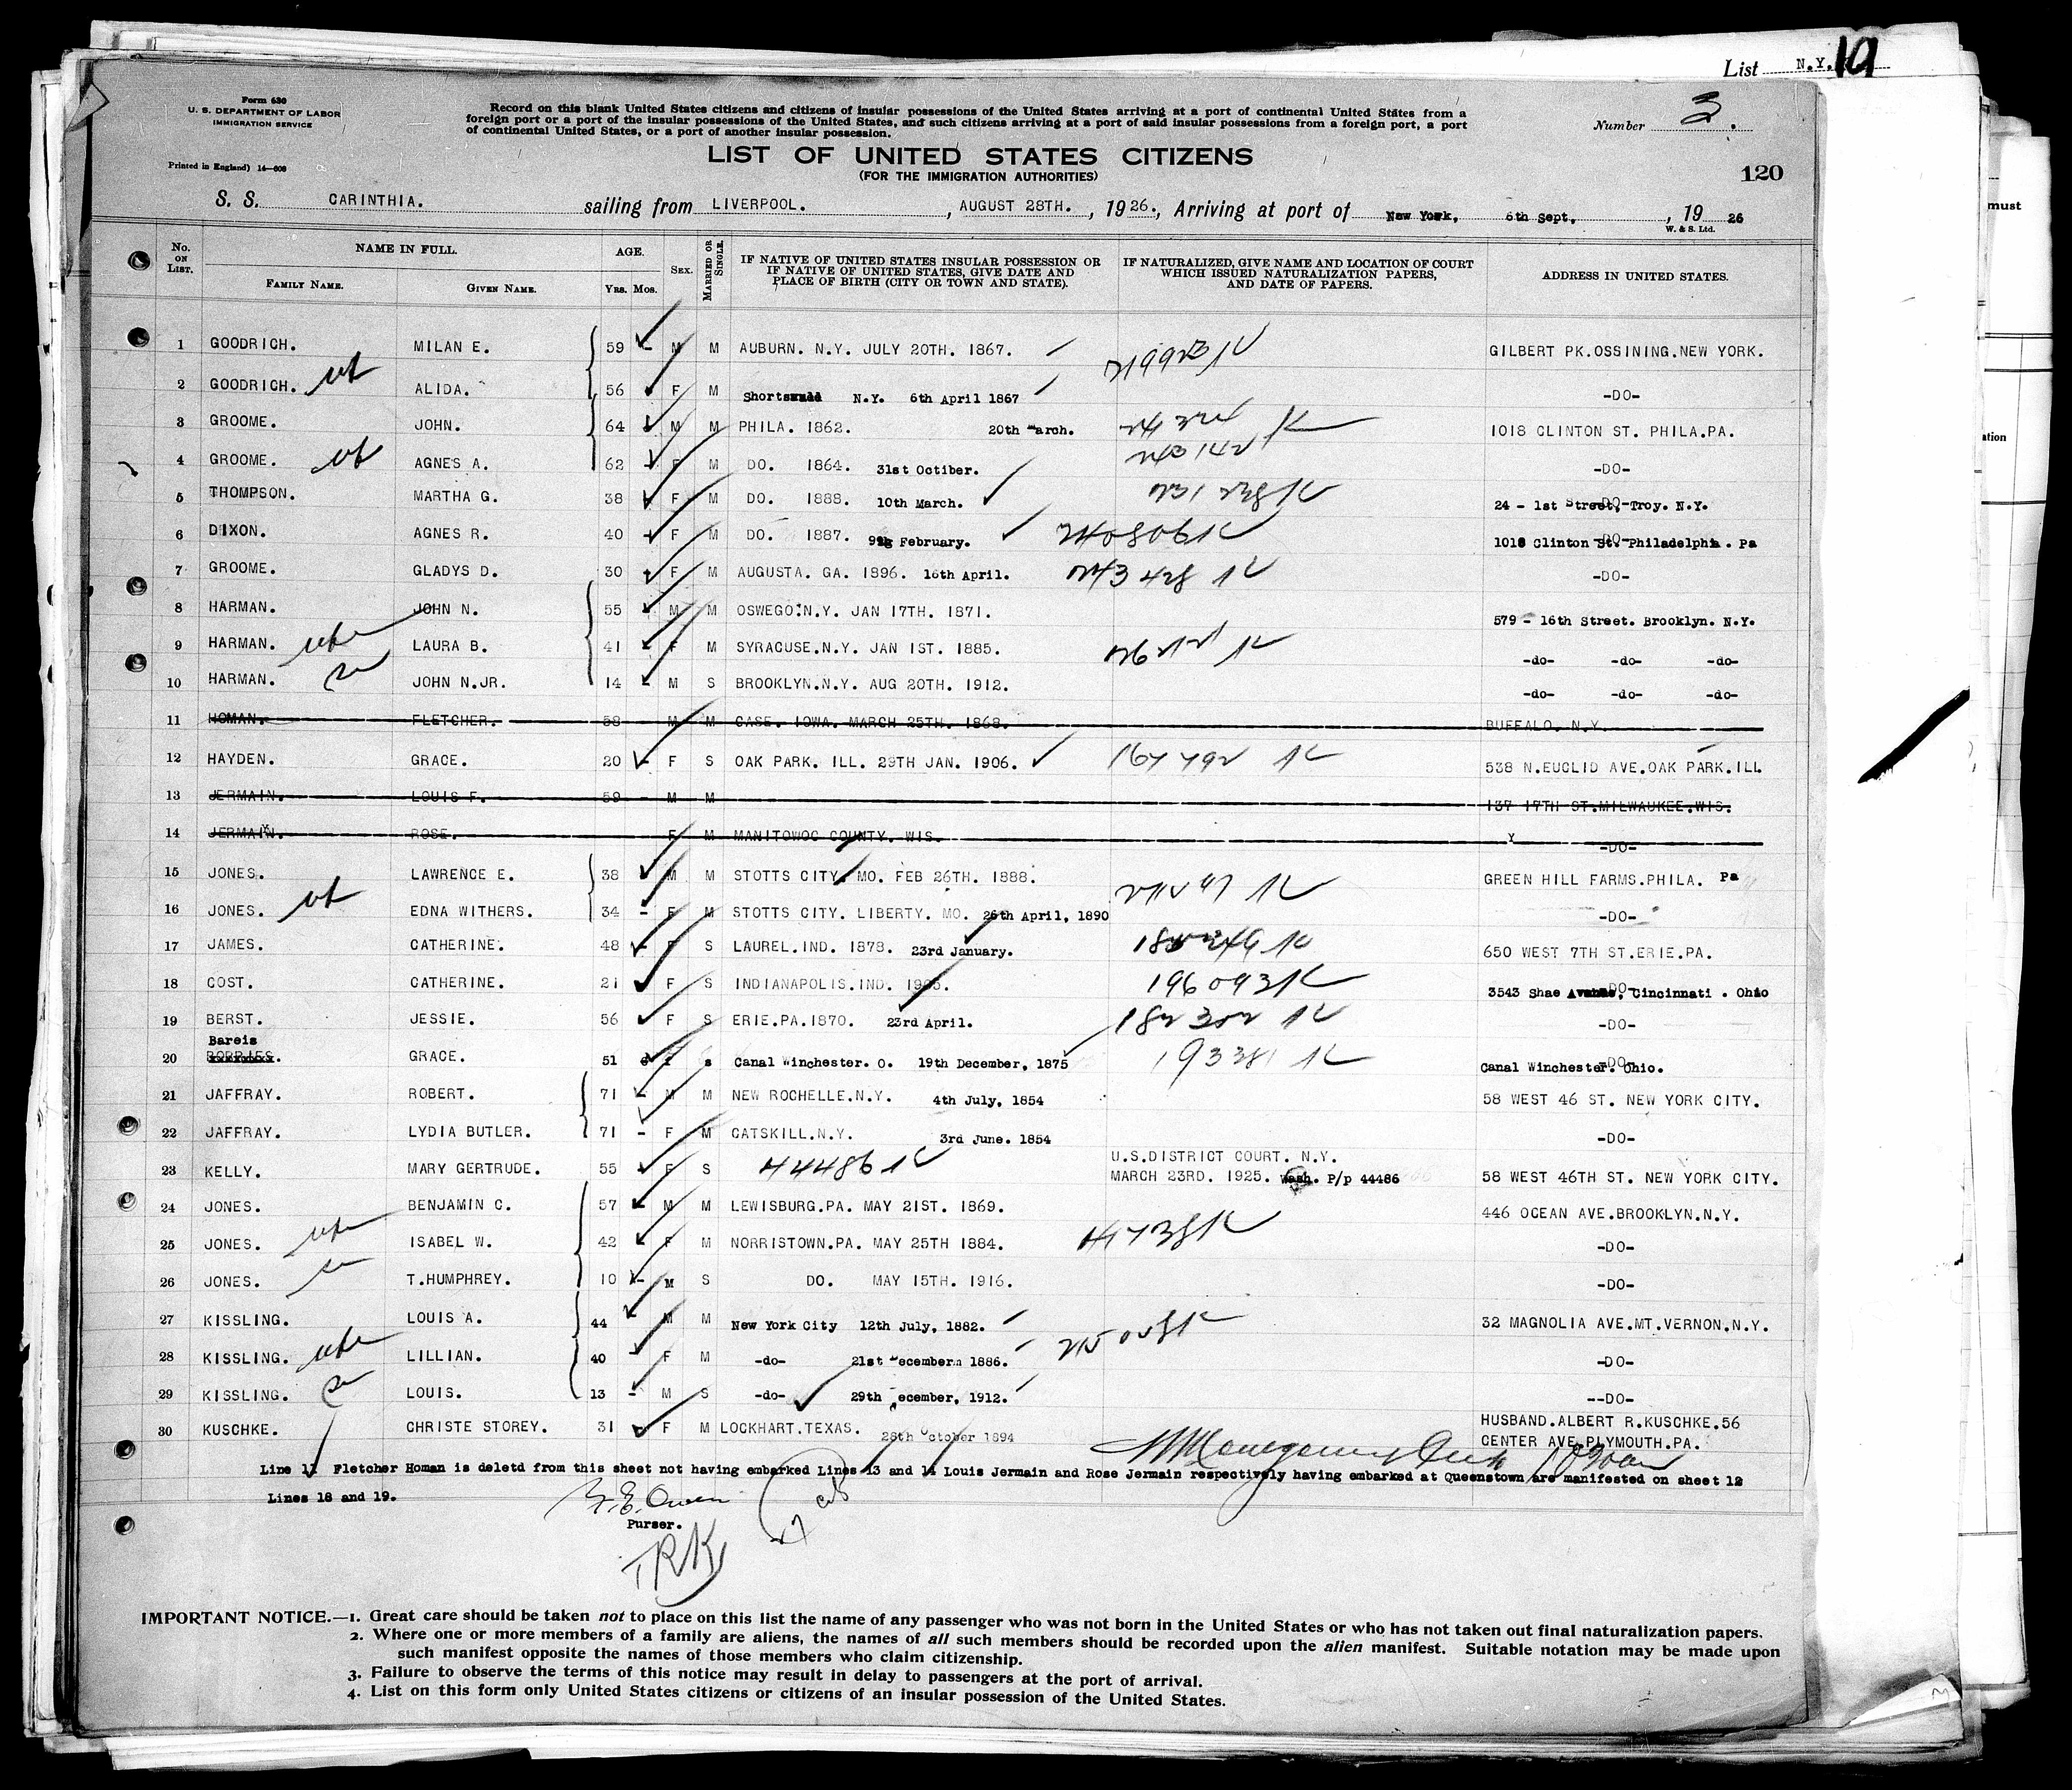 List N.Y. 19
Form 630
U. S. DEPARTMENT OF LABOR
IMMIGRATION SERVICE
Printed in England) 14—608
Record on this blank United States citizens and citizens of insular possessions of the United States arriving at a port of continental United States from a
foreign port or a port of the insular possessions of the United States, and such citizens arriving at a port of said insular possessions from a foreign port, a port
of continental United States, or a port of another insular possession.
Number 3.
LIST OF UNITED STATES CITIZENS
(FOR THE IMMIGRATION AUTHORITIES)
120
S. S. CARINTHIA. sailing from LIVERPOOL. , AUGUST 28TH. , 1926., Arriving at port of New York, 6th Sept. , 19 26
W. & S. Ltd.
No. ON LIST. NAME IN FULL. FAMILY NAME. GIVEN NAME. AGE. Yrs. Mos. SEX. MARRIED OR SINGLE. IF NATIVE OF UNITED STATES INSULAR POSSESSION OR IF NATIVE OF UNITED STATES, GIVE DATE AND PLACE OF BIRTH (CITY OR TOWN AND STATE). IF NATURALIZED, GIVE NAME AND LOCATION OF COURT WHICH ISSUED NATURALIZATION PAPERS, AND DATE OF PAPERS. ADDRESS IN UNITED STATES.
1 GOODRICH. MILAN E. 59 - M M AUBURN. N.Y. JULY 20TH. 1867. GILBERT PK.OSSINING.NEW YORK.
2 GOODRICH. ALIDA. 56 F M N.Y. 6th April 1867 -DO-
3 GROOME. JOHN. 64 - M M PHILA. 1862. 20th March. 1018 CLINTON ST. PHILA.PA.
4 GROOME. AGNES A. 62 - F M DO. 1864. 31st Octiber. -DO-
5 THOMPSON. MARTHA G. 38 - F M DO. 1888. 10th March. 24 - 1st Street, Troy. N.Y.
6 DIXON. AGNES R. 40 - F M DO. 1887. February. 1018 Clinton St. Philadelphia. Pa
7 GROOME. GLADYS D. 30 - F M AUGUSTA. GA. 1896. 16th April. -DO-
8 HARMAN. JOHN N. 55 - M M OSWEGO.N.Y. JAN 17TH. 1871. 579 - 16th Street. Brooklyn. N.Y.
9 HARMAN. LAURA B. 41 - F M SYRACUSE.N.Y. JAN 1ST. 1885. -do- -do- -do-
10 HARMAN. JOHN N.JR. 14 - M S BROOKLYN.N.Y. AUG 20TH. 1912. -do- -do- -do-
11 HOMAN. FLETCHER. 58 M M CASE. IOWA. MARCH 25TH. 1868. BUFFALO. N.Y.
12 HAYDEN. GRACE. 20 - F S OAK PARK. ILL. 29TH JAN. 1906. 538 N.EUCLID AVE.OAK PARK.ILL
13 JERMAIN. LOUIS F. 59 - M M 137 17TH ST.MILWAUKEE.WIS.
14 JERMAIN. ROSE. F M MANITOWOC COUNTY. WIS. -DO-
15 JONES. LAWRENCE E. 38 M M STOTTS CITY. MO. FEB 26TH. 1888. GREEN HILL FARMS.PHILA. Pa
16 JONES. EDNA WITHERS. 34 - F M STOTTS CITY. LIBERTY. MO. 26th April, 1890 -DO-
17 JAMES. CATHERINE. 48 - F S LAUREL.IND. 1878. 23rd January. 650 WEST 7TH ST.ERIE.PA.
18 COST. CATHERINE. 21 F S INDIANAPOLIS.IND. 1905. 196093 3543 Shae Cincinnati . Ohio
19 BERST. JESSIE. 56 F S ERIE.PA.1870. 23rd April. 182302 -DO-
20 Bareis GRACE. 51 F s Canal Winchester. O. 19th December, 1875 193381 Canal Winchester. Ohio.
21 JAFFRAY. ROBERT. 71 - M M NEW ROCHELLE.N.Y. 4th July, 1854 58 WEST 46 ST. NEW YORK CITY.
22 JAFFRAY. LYDIA BUTLER. 71 - F M CATSKILL.N.Y. 3rd June. 1854 -DO-
23 KELLY. MARY GERTRUDE. 55 - F S 44486 U.S.DISTRICT COURT. N.Y. MARCH 23RD. 1925. Wash. P/p 44486 58 WEST 46TH ST. NEW YORK CITY.
24 JONES. BENJAMIN C. 57 - M M LEWISBURG.PA. MAY 21ST. 1869. 446 OCEAN AVE.BROOKLYN.N.Y.
25 JONES. ISABEL W. 42 - F M NORRISTOWN.PA. MAY 25TH 1884. -DO-
26 JONES. T.HUMPHREY. 10 - M S DO. MAY 15TH. 1916. -DO-
27 KISSLING. LOUIS A. 44 - M M New York City 12th July, 1882. 32 MAGNOLIA AVE.MT.VERNON.N.Y.
28 KISSLING. LILLIAN. 40 - F M -do- 21st December 1886. -DO-
29 KISSLING. LOUIS. 13 - M S -do- 29th December, 1912. --DO-
30 KUSCHKE. CHRISTE STOREY. 31 - F M LOCKHART.TEXAS. 28th October 1894 HUSBAND.ALBERT R.KUSCHKE.56 CENTER AVE.PLYMOUTH.PA.
Line 11 Fletcher Homan is deletd from this sheet not having embarked Lines 13 and 14 Louis Jermain and Rose Jermain respectively having embarked at Queenstown are manifested on sheet 12
Lines 18 and 19.
Purser.
TRK
IMPORTANT NOTICE.—1. Great care should be taken not to place on this list the name of any passenger who was not born in the United States or who has not taken out final naturalization papers.
2. Where one or more members of a family are aliens, the names of all such members should be recorded upon the alien manifest. Suitable notation may be made upon
such manifest opposite the names of those members who claim citizenship.
3. Failure to observe the terms of this notice may result in delay to passengers at the port of arrival.
4. List on this form only United States citizens or citizens of an insular possession of the United States.